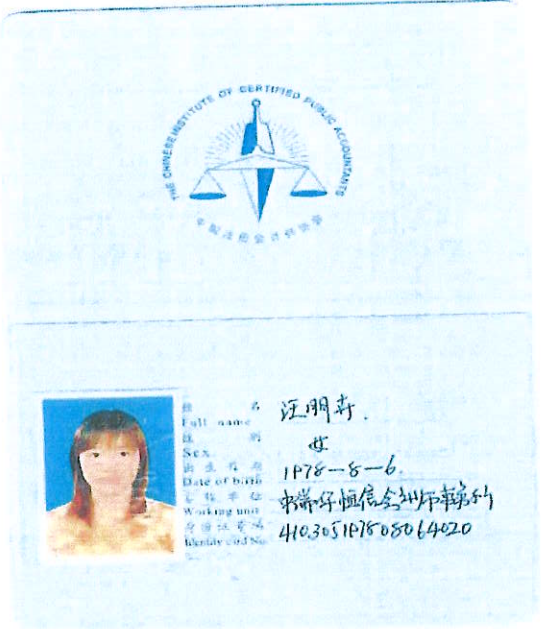 THE CHINESE INSTITUTE OF CERTIFIED PUBLIC ACCOUNTANTS
中国注册会计师协会
姓 名
Full name
汪朋卉
性 别
Sex
女
出生日期
Date of birth
1978-8-6
工作单位
Working unit
会计师事务所
身份证号码
Identity card No.
410305197808064020